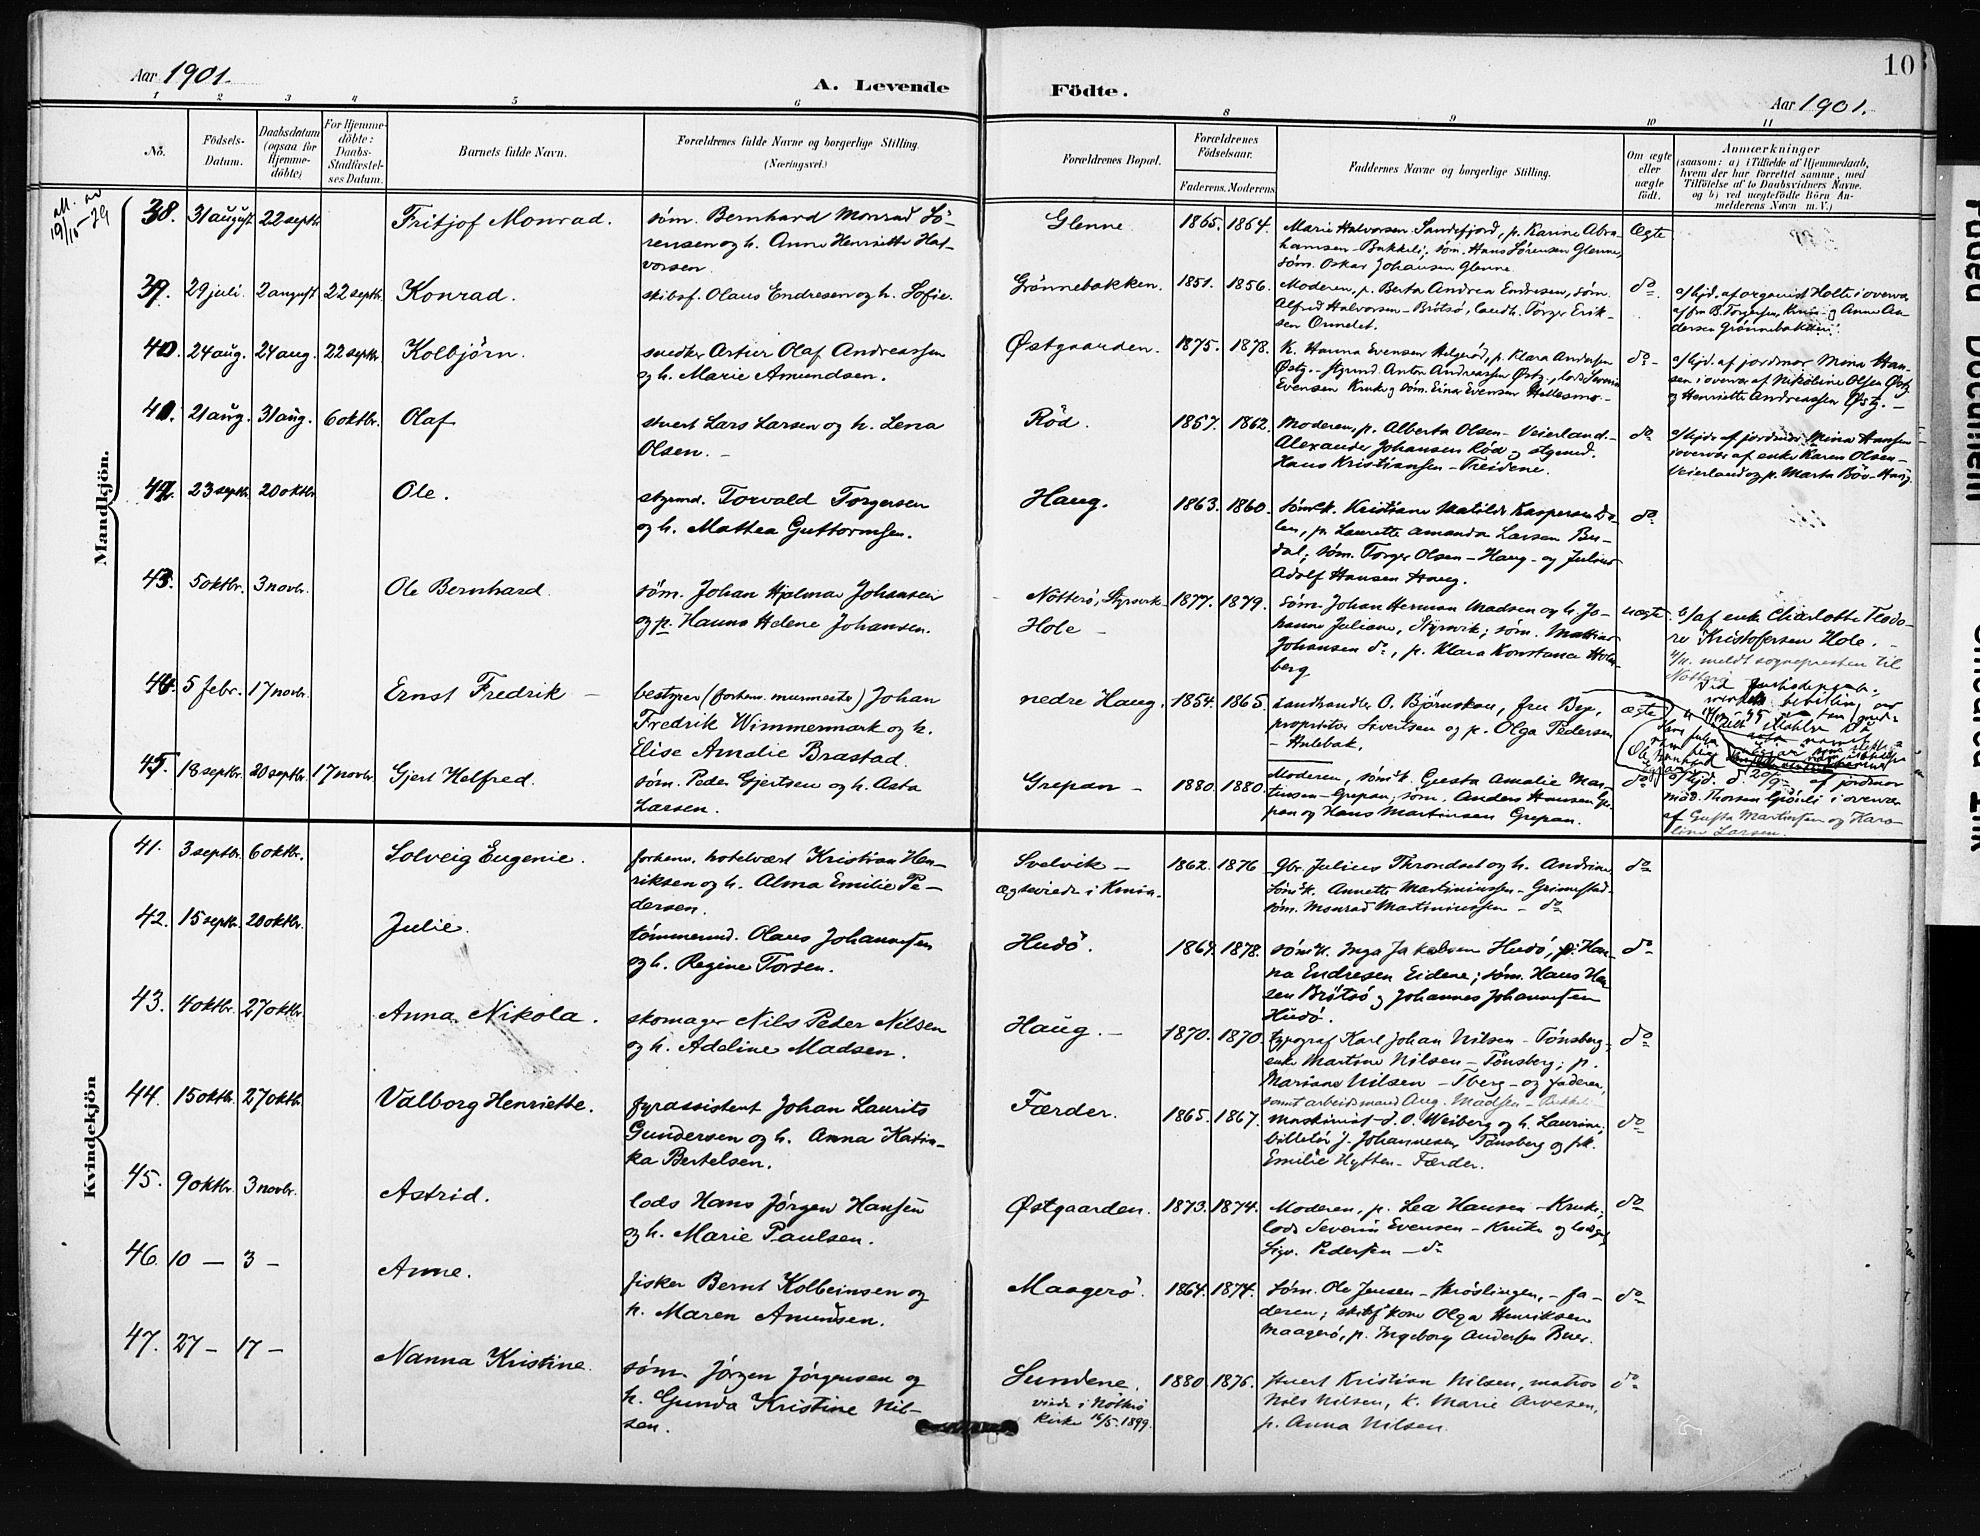 Aar 1901.
A. Levende
Födte.
Aar 1901.
10
1 2 3 4 5 6 8 9 10 11
No.
Födsels-
Datum.
Daabsdatum
(ogsaa for
Hjemme-
döbte)
For Hjemme-
döbte:
Daabs-
Stadfæstel-
ses Datum.
Barnets fulde Navn.
Forældrenes fulde Navne og borgerlige Stilling.
(Næringsvei.)
Forældrenes Bopæl.
Forældrenes
Födselsaar.
Faderens. Moderens.
Faddernes Navne og borgerlige Stilling.
Om ægte
eller
uægte
födt.
Anmærkninger
(saasom: a) i Tilfælde af Hjemmedaab,
hvem der har forrettet samme, med
Tilföielse af to Daabsvidners Navne,
og b) ved uægtefödte Börn An-
melderens Navn m. V.)
Mandkjön.
38. 31 august 22 septbr. Fritjof Monrad.
søm. Bernhard Monrad Sö-
rensen og h. Anne Henriette Hal-
vorsen.
Glenne 1865. 1864.
Marie Halvorsen Sandefjord, p. Karine Abra-
hamsen - Bakkeli; søm. Hans Sørensen Glenne,
søm. Oskar Johansen Glenne.
Ægte
39. 29 juli. 2 august 22 septbr. Konrad.
skibsf. Olaus Endresen og h. Sofie.
Grønnebakken. 1851. 1856.
Moderen, p. Berta Andrea Endresen, søm.
Alfred Halvorsen - Brötsö, landh. Torger Erik-
sen Ormelet.
do
a/ hjd. af organist Holte i overvær
af fru B. Torgersen, Kruke og Anne An-
dersen Grönnebakken.
40. 24 aug. 24 aug. 22 septbr. Kolbjörn.
snedker Artur Olaf Andreassen
og h. Marie Amundsen.
Østgaarden. 1875. 1878.
K. Hanna Evensen Helgeröd, p. Klara Andersen
Østg. - styrmd. Anton Andreassen Østg., lods Severin
Evensen Kruke og søm. Einar Evensen Hellesmo -
do
a/ hjd. af jordmor Mina Han-
sen i overvær af Nikoline Olsen Østg.
og Henriette Andreassen Østg. -
41. 21 aug. 31 aug. 6 oktbr. Olaf
stuert Lars Larsen og h. Lena
Olsen. -
Röd. 1857. 1862.
Moderen, p. Alberta Olsen - Veierland -
Alexander Johansen Rød og styrmd.
Hans Kristiansen - Treidene.
do
a/ hjd. af jordmor Mina Hansen
i overvær af enke Karen Olsen -
Veierland og p. Marta Böe - Haug.
42. 23 septbr. 20 oktbr. Ole.
styrmd. Torvald Torgersen
og h. Mathea Guttormsen.
Haug. 1863. 1860.
søm.k. Kristiane Matilde Kaspersen Da-
len, p. Laurette Amanda Larsen Bu-
dal; søm. Torger Olsen - Haug - og Julius
Adolf Hansen Haug.
do
43. 5 oktbr. 3 novbr. Ole Bernhard.
søm. Johan Hjalmar Johansen
og p. Hanna Helene Johansen.
Nötterö, Styrsvik -
Hole - 1877. 1879.
Søm. Johan Herman Madsen og h. Jo-
hanne Juliane, Styrsvik; søm. Mathias
Johansen do, p. Klara Konstance Holm-
berg
uægte
b/ af enke Charlotte Teodo-
ra Kristofersen Hole. -
4/11. meldt sognepresten til
Nötterö
44. 5 febr. 17 novbr. Ernst Fredrik -
bestyrer (forhenv. murmester) Johan
Fredrik Wimmermark og h.
Elise Amalie Brastad.
nedre Haug. 1854. 1865.
landhandler O. Björnskau, fru Bye,
proprietær Sivertsen og p. Olga Pedersen
- Hulebak.
ægte
45. 18 septbr. 20 septbr. 17 novbr. Gjert Helfred.
søm. Peder Gjertsen og h. Asta
Larsen.
Grepan - 1880. 1880.
Moderen, søm.k. Gusta Amalie Mar-
tinsen - Grepan, søm. Anders Hansen Gre-
pan og Hans Martinsen Grepan.
do
a/ hjd. d. 20/9 af jordmor
mad. Thorsen Gjönli i overvær
af Gusta Martinsen og Karo-
line Larsen.
Kvindekjön
41. 3 septbr. 6 oktbr. Solveig Eugenie.
forhenv. hotelvært Kristian Hen-
riksen og h. Alma Emilie Pe-
dersen.
Svelvik -
Ægteviede i Krnia. 1862. 1876
Gbr. Julius Throndset og h. Andrine,
søm.k. Annette Martiniussen - Grimestad -
søm. Monrad Martiniussen - do
do
42. 15 septbr. 20 oktbr. Julie.
tømmermd. Olaus Johannesen
og h. Regine Torsen.
Hudö. 1864. 1878.
søm.k. Inga Jakobsen Hudö, p. Han-
na Endresen Eidene; søm. Hans Han-
sen Brötsö og Johannes Johannesen
Hudö.
do
43. 4 oktbr. 27 oktbr. Anna Nikola.
skomager Nils Peder Nilsen
og h. Adeline Madsen.
Haug. - 1870. 1870.
typograf Karl Johan Nilsen - Tønsberg,
enke Martine Nilsen - Tønsberg; p.
Mariane Nilsen - Tberg - og faderen,
samt arbeidsmand Aug. Madsen - Bakkeli -
do
44. 15 oktbr. 27 oktbr. Valborg Henriette.
fyrassistent Johan Laurits
Gundersen og h. Anna Katin-
ka Bertelsen.
Færder. 1865. 1867.
maskinist J. O. Weiberg og h. Laurine,
billetör J. Johannesen Tønsberg og frk.
Emilie Hytten - Færder.
do
45. 9 oktbr. 3 novbr. Astrid.
lods Hans Jørgen Hansen
og h. Marie Paulsen.
Østgaarden. 1873. 1874.
Moderen, p. Lea Hansen - Kruke;
lods Severin Evensen - Kruke og
Sigv. Pedersen - do
do
46. 10 - 3 - Anne.
fisker Bernt Kolbeinsen og
h. Maren Amundsen.
Maagerö. 1864. 1874.
Søm. Ole Jensen - Skröslingen, - fa-
deren; skibsf. kone Olga Henriksen
Maagerö, p. Ingeborg Andersen Buer.
do
47. 27 - 17 - Nanna Kristine.
søm. Jörgen Jörgensen og
h. Gunda Kristine Nil-
sen.
Sundene.
viede i Nötterö
Kirke 15/5. 1899. 1880 1876.
Stuert Kristian Nilsen, matros
Nils Nilsen, k. Marie Arvesen,
p. Anna Nilsen.
do